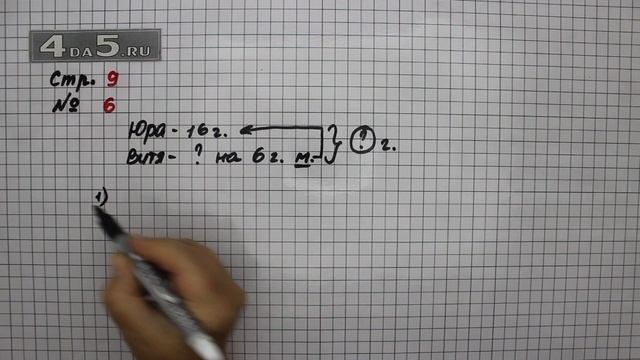 4 DA 5.RU
Стр. 9
№ 6
Юра - 16 г.
Витя - ? на 6 г. м. ? г.
1)